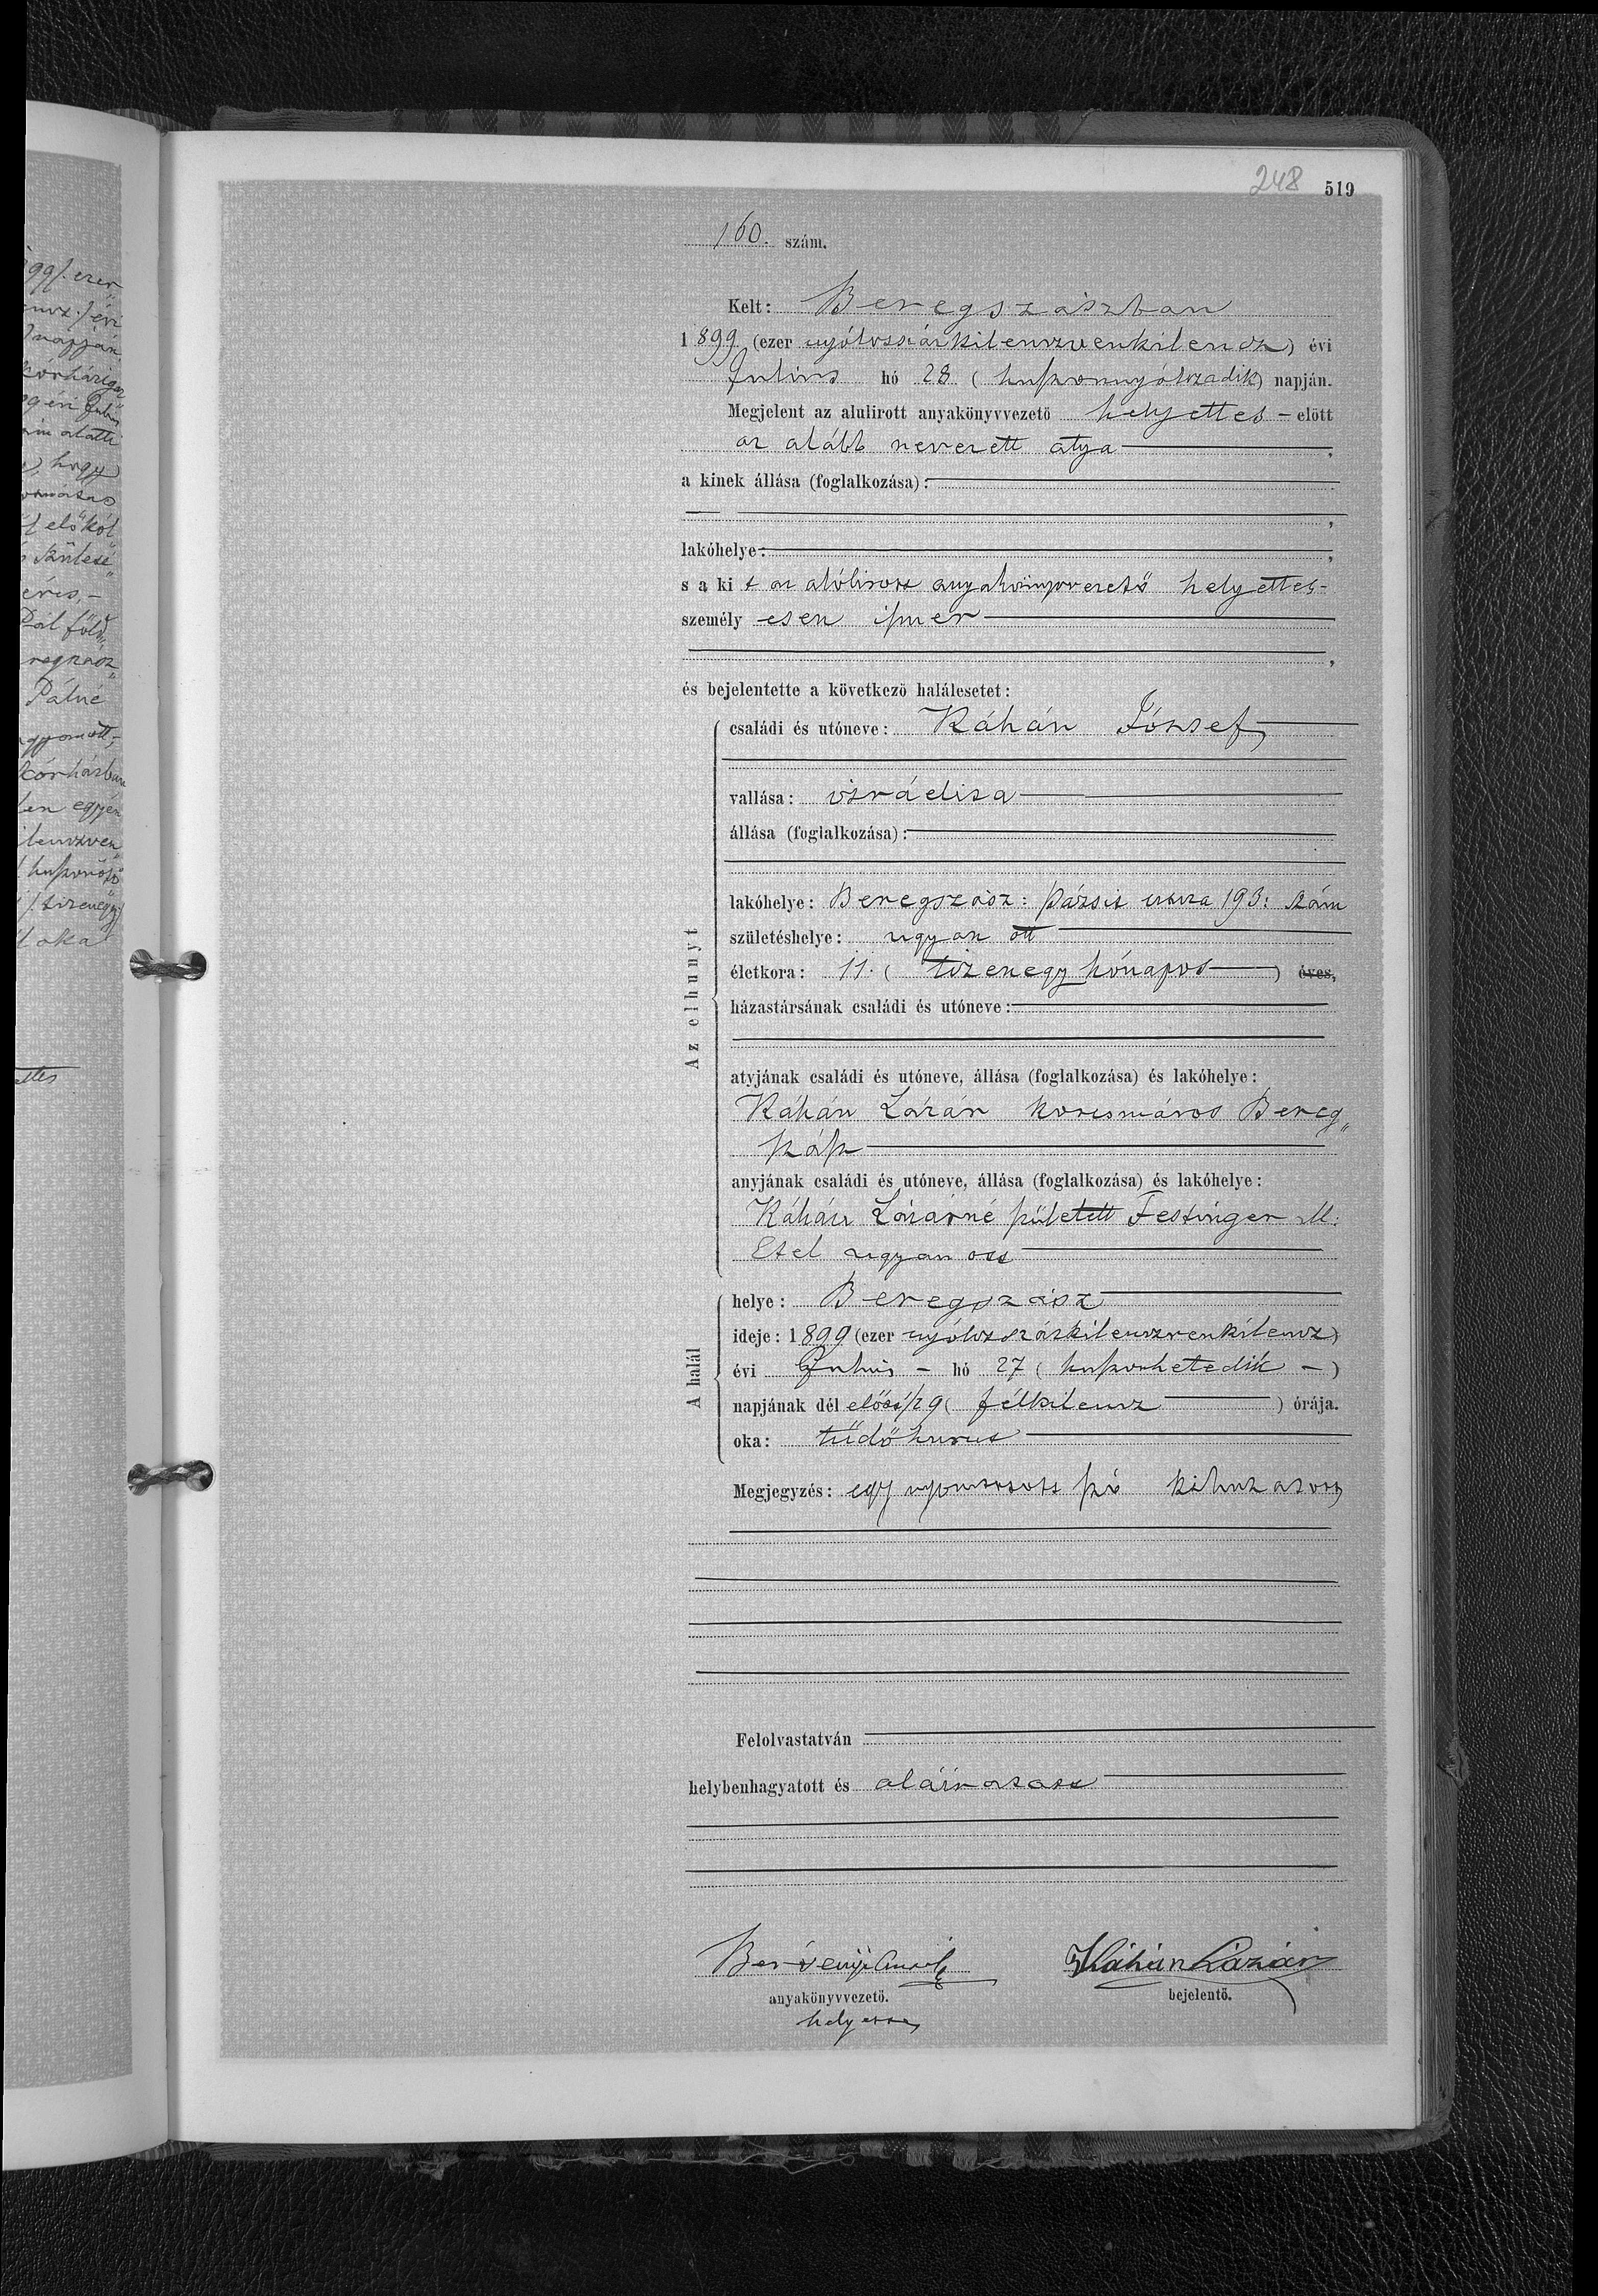 248 519
160. szám.
Kelt: Beregszászban
1899 (ezer nyolcszázkilenczvenkilencz) évi
Julius hó 28 (huszonnyolczadik) napján.
Megjelent az alulirott anyakönyvvezető helyettes – előtt
az alább nevezett atya ,
a kinek állása (foglalkozása):
,
lakóhelye: ,
s a kit az alólirott anyakönyvvezető helyettes-
személyesen ismer
,
és bejelentette a következő halálesetet:
Az elhunyt
családi és utóneve: Káhán József
vallása: izráelita
állása (foglalkozása):
lakóhelye: Beregszász: Pázsit utcza 193: szám
születéshelye: ugyan ott
életkora: 11. ( tizenegy hónapos ) éves,
házastársának családi és utóneve:
atyjának családi és utóneve, állása (foglalkozása) és lakóhelye:
Káhán Lázár korcsmáros Bereg„
szász
anyjának családi és utóneve, állása (foglalkozása) és lakóhelye:
Káhán Lázárné született Festinger M:
Etel ugyan ott
A halál
helye: Beregszász
ideje: 1899 (ezer nyólczszázkilenczvenkilencz)
évi Julius – hó 27 ( huszonhetedik – )
napjának dél előtti 1/2 9 ( félkilencz ) órája.
oka: tüdőhurut
Megjegyzés: egy nyomtatott szó kihuzatott
Felolvastatván
helybenhagyatott és aláiratott
Káhán Lázár
anyakönyvvezető. bejelentő.
helyettes